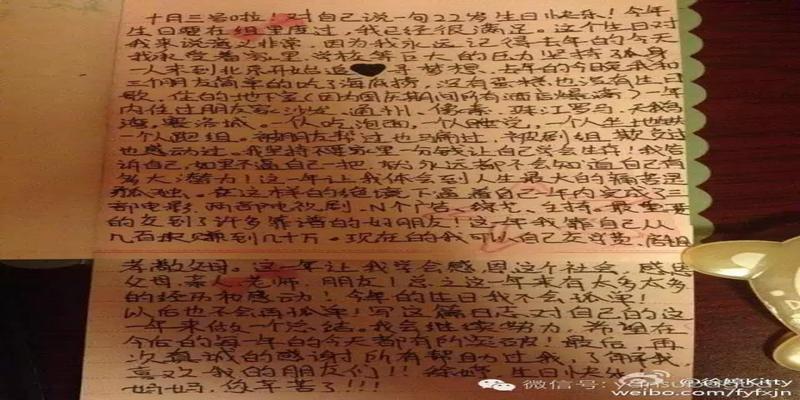 十月三号0啦!对自己说一句22岁生日快乐!今年
生日虽在组里度过,我已经很满足。这个生日对
我来说意义非常,因为我永远记得去年的今天
我承受着家里、学校等巨大的压力坚持孤身
一人来到北京开始追寻梦想。去年的今日晚我和
三个朋友简单的吃了海底捞,没有蛋糕也没有生日
歌,住的地下室(因为国庆期间所有酒店爆满)一年
内住过朋友家、沙发、通州、像素、珠江罗马、天鹅
湾、一个人吃泡面,一个人睡觉,一个人生
一个人跑组。被朋友 过也 过,被剧组欺负过
也感动过。我坚持不要家里一分钱让自己学会生存!我告
诉自己,如果不逼自己一把,永远都不会知道自己有
多大潜力!这一年让我体会到人生最大的痛苦是
孤独。在这样的绝境下逼着自己年内完成三
部电影、两部电视剧、N个广告、综艺、主持。最重要
的交到了许多靠谱的好朋友!这一年我靠自己从
几百块赚到几十万。现在的我可以自己交学费、
孝敬父母。这一年让我学会感恩这个社会,感恩
父母、亲人、老师、朋友!总之这一年来有太多太多
的经历和感动!今年的生日我不会孤单!
以后也不会再孤单!写这篇日志,对自己的这
一年来做一个总结。我会继续努力,希望在
今后的每一年的今天都有所突破!最后,再
次真诚的感谢所有帮助过我、了解我、
喜欢我的朋友们!!徐婷,生日快乐
妈妈,您辛苦了!!!
微信号:
@徐婷Kitty
weibo.com/fyfxjn